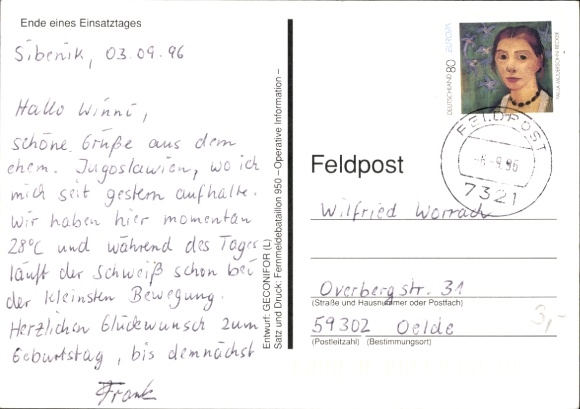 Ende eines Einsatztages
Šibenik, 03.09.96
Hallo Winni,
schöne Grüße aus dem
ehem. Jugoslawien, wo ich
mich seit gestern aufhalte.
Wir haben hier momentan
28°C und während des Tages
läuft der Schweiß schon bei
der kleinsten Bewegung.
Herzlichen Glückwunsch zum
Geburtstag, bis demnächst
Frank
Entwurf: GECONIFOR (L)
Satz und Druck: Fernmeldebataillon 950 – Operative Information –
DEUTSCHLAND 80 EUROPA
PAULA MODERSOHN-BECKER
FELDPOST
-6.-9.96
7321
Feldpost
Wilfried Worrach
Overbergstr. 31
(Straße und Hausnummer oder Postfach)
59302 Oelde
(Postleitzahl) (Bestimmungsort)
3,-